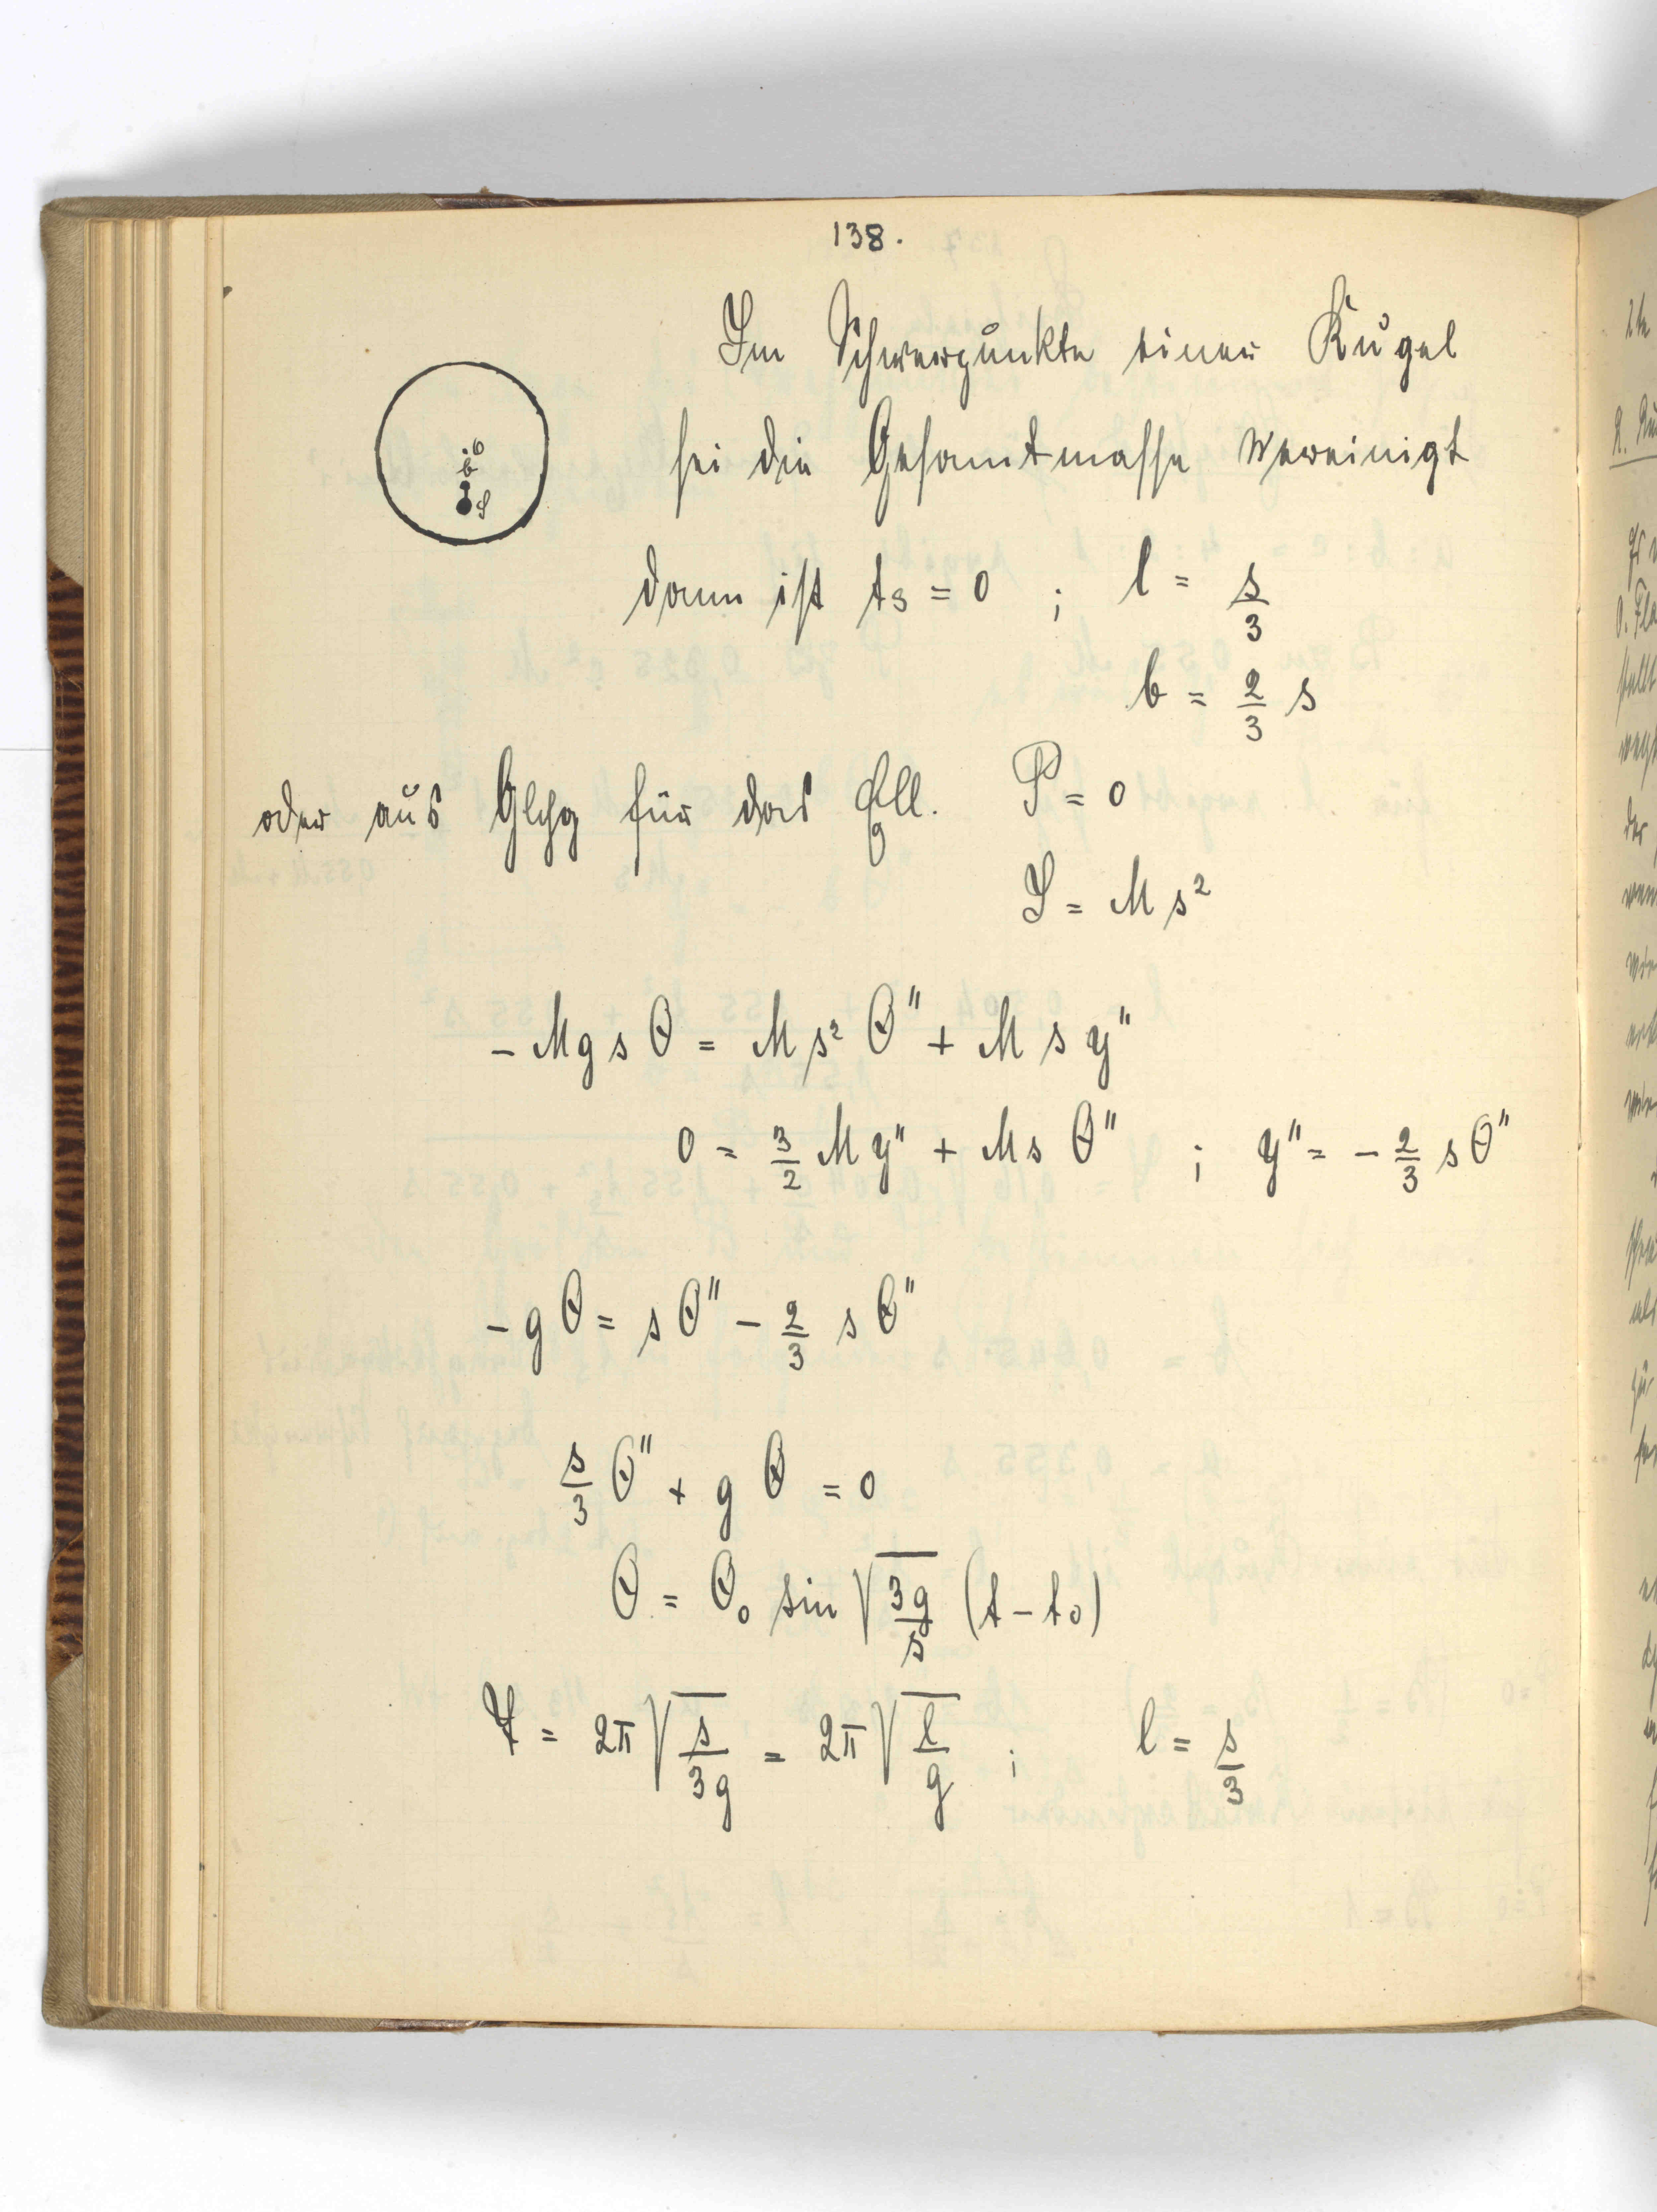 138.
Im Schwerpunkte einer Kugel
sei die Gesamtmasse vereinigt
dann ist ts = 0 ; l = s/3
b = 2/3 s
oder aus Glchg für das Ell. P = 0
J = M s²
- M g s θ = M s² θ'' + M s y''
0 = 3/2 M y'' + M s θ'' ; y'' = - 2/3 s θ''
- g θ = s θ'' - 2/3 s θ''
s/3 θ'' + g θ = 0
θ = θ₀ sin √(3g/s) (t - t₀)
= 2π √(s/3g) = 2π √(l/g) ; l = s/3